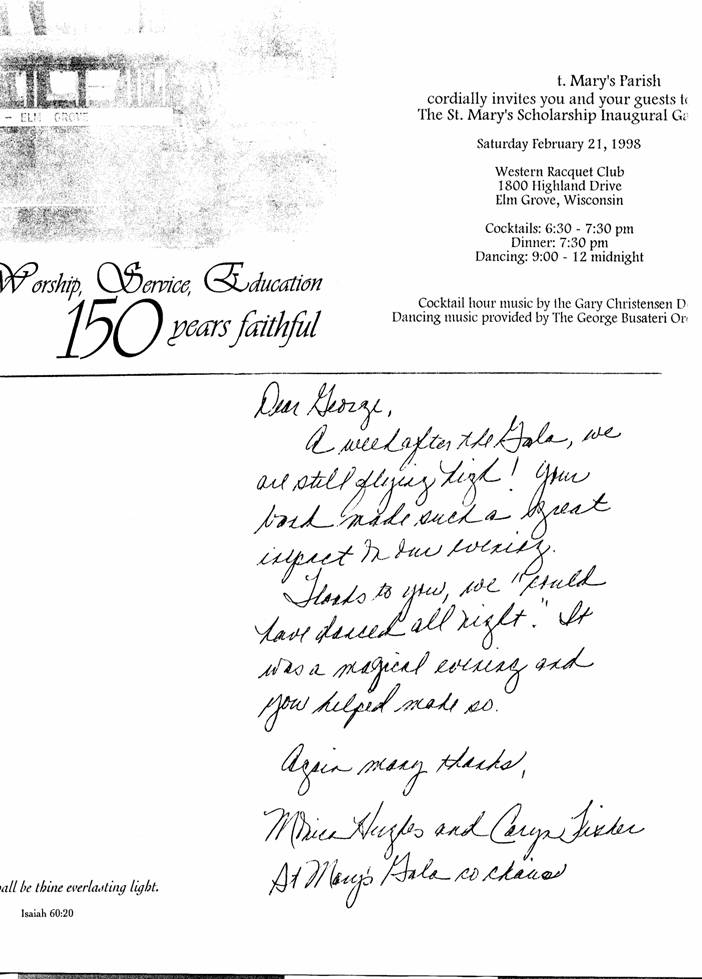 - ELM GROVE
Worship, Service, Education
150 years faithful
t. Mary's Parish
cordially invites you and your guests to
The St. Mary's Scholarship Inaugural Ga
Saturday February 21, 1998
Western Racquet Club
1800 Highland Drive
Elm Grove, Wisconsin
Cocktails: 6:30 - 7:30 pm
Dinner: 7:30 pm
Dancing: 9:00 - 12 midnight
Cocktail hour music by the Gary Christensen D
Dancing music provided by The George Busateri Or
Dear George,
A week after the Gala, we
are still flying high! Your
band made such a great
impact on our evening.
Thanks to you, we "could
have danced all night." It
was a magical evening and
you helped made so.
Again many thanks,
Monica Hughes and Caryn Fisher
St Mary's Gala co chairs
all be thine everlasting light.
Isaiah 60:20